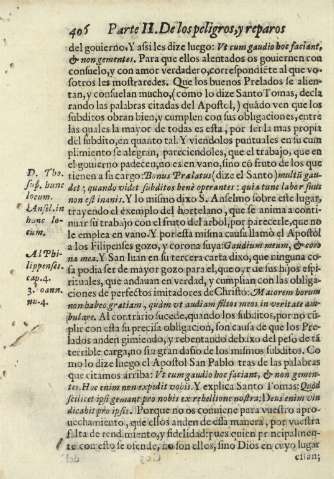 406 Parte II. De los peligros, y reparos
del gouierno, Y assi les dize luego: Vt cum gaudio hoc faciant,
& non gementes. Para que ellos alentados os gouiernen con
consuelo, y con amor verdadero, correspondiēte al que vo-
sotros les mostraredes. Que los buenos Prelados se alien-
tan, y consuelan mucho, (como lo dize Santo Tomas, decla
rando las palabras citadas del Apostol,) quādo ven que los
subditos obran bien, y cumplen con sus obligaciones, entre
las quales la mayor de todas es esta, por ser la mas propia
del subdito, en quanto tal. Y viendolos puntuales en su cum
plimiento se alegran, pareciendoles, que el trabajo, que en
el gouierno padecen, no es en vano, sino cō fruto de los que
tienen a su cargo: Bonus Prælatus (dize el Santo) multū gau-
det, quando videt subditos benè operantes: quia tunc labor suus
non est inanis. Y lo mismo dixo S. Anselmo sobre este lugar,
trayendo el exemplo del hortelano, que se anima a conti-
nuar su trabajo con el fruto del arbol, por parecerle, que no
le emplea en vano. Y por esta misma causa llamò el Apostol
a los Filipenses gozo, y corona suya: Gaudium meum, & coro
na mea. Y San Iuan en su tercera carta dixo, que ninguna co
sa podia ser de mayor gozo para el, que oyr de sus hijos espi-
rituales, que andauan en verdad, y cumplian con las obliga-
ciones de perfectos imitadores de Christo: Maiorem horum
non habeo gratiam, quàm vt audiam filios meos in veritate am-
bulare. Al contrario sucede, quando los subditos, por no cū-
plir con esta su precisa obligacion, son causa de que los Pre-
lados anden gimiendo, y rebentando debaxo del peso de tā
terrible carga, no su gran daño de los mismos subditos. Co
mo lo dize luego el Apostol San Pablo tras de las palabras
que citamos arriba: Vt cum gaudio hoc faciant, & non gemen-
tes. Hoc enim non expedit vobis. Y explica Santo Tomas: Quòd
scilicet ipsi gemant pro nobis ex rebellione nostra: Deus enim vin
dicabit pro ipsis. Porque no os conuiene para vuestro apro-
uechamiento, que ellos anden de essa manera, por vuestra
falta de rendimiento, y fidelidad: pues quien principalmen-
te con esto se ofende, no son ellos, sino Dios en cuyo lugar
estan;
D. Tho.
sup. hunc
locum.
Ansil. in
hunc lo-
cum.
Al Phi-
lippenses.
cap. 4.
3. Ioann.
nu. 4.